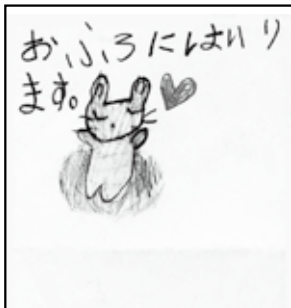 おふろにはいり
ます。